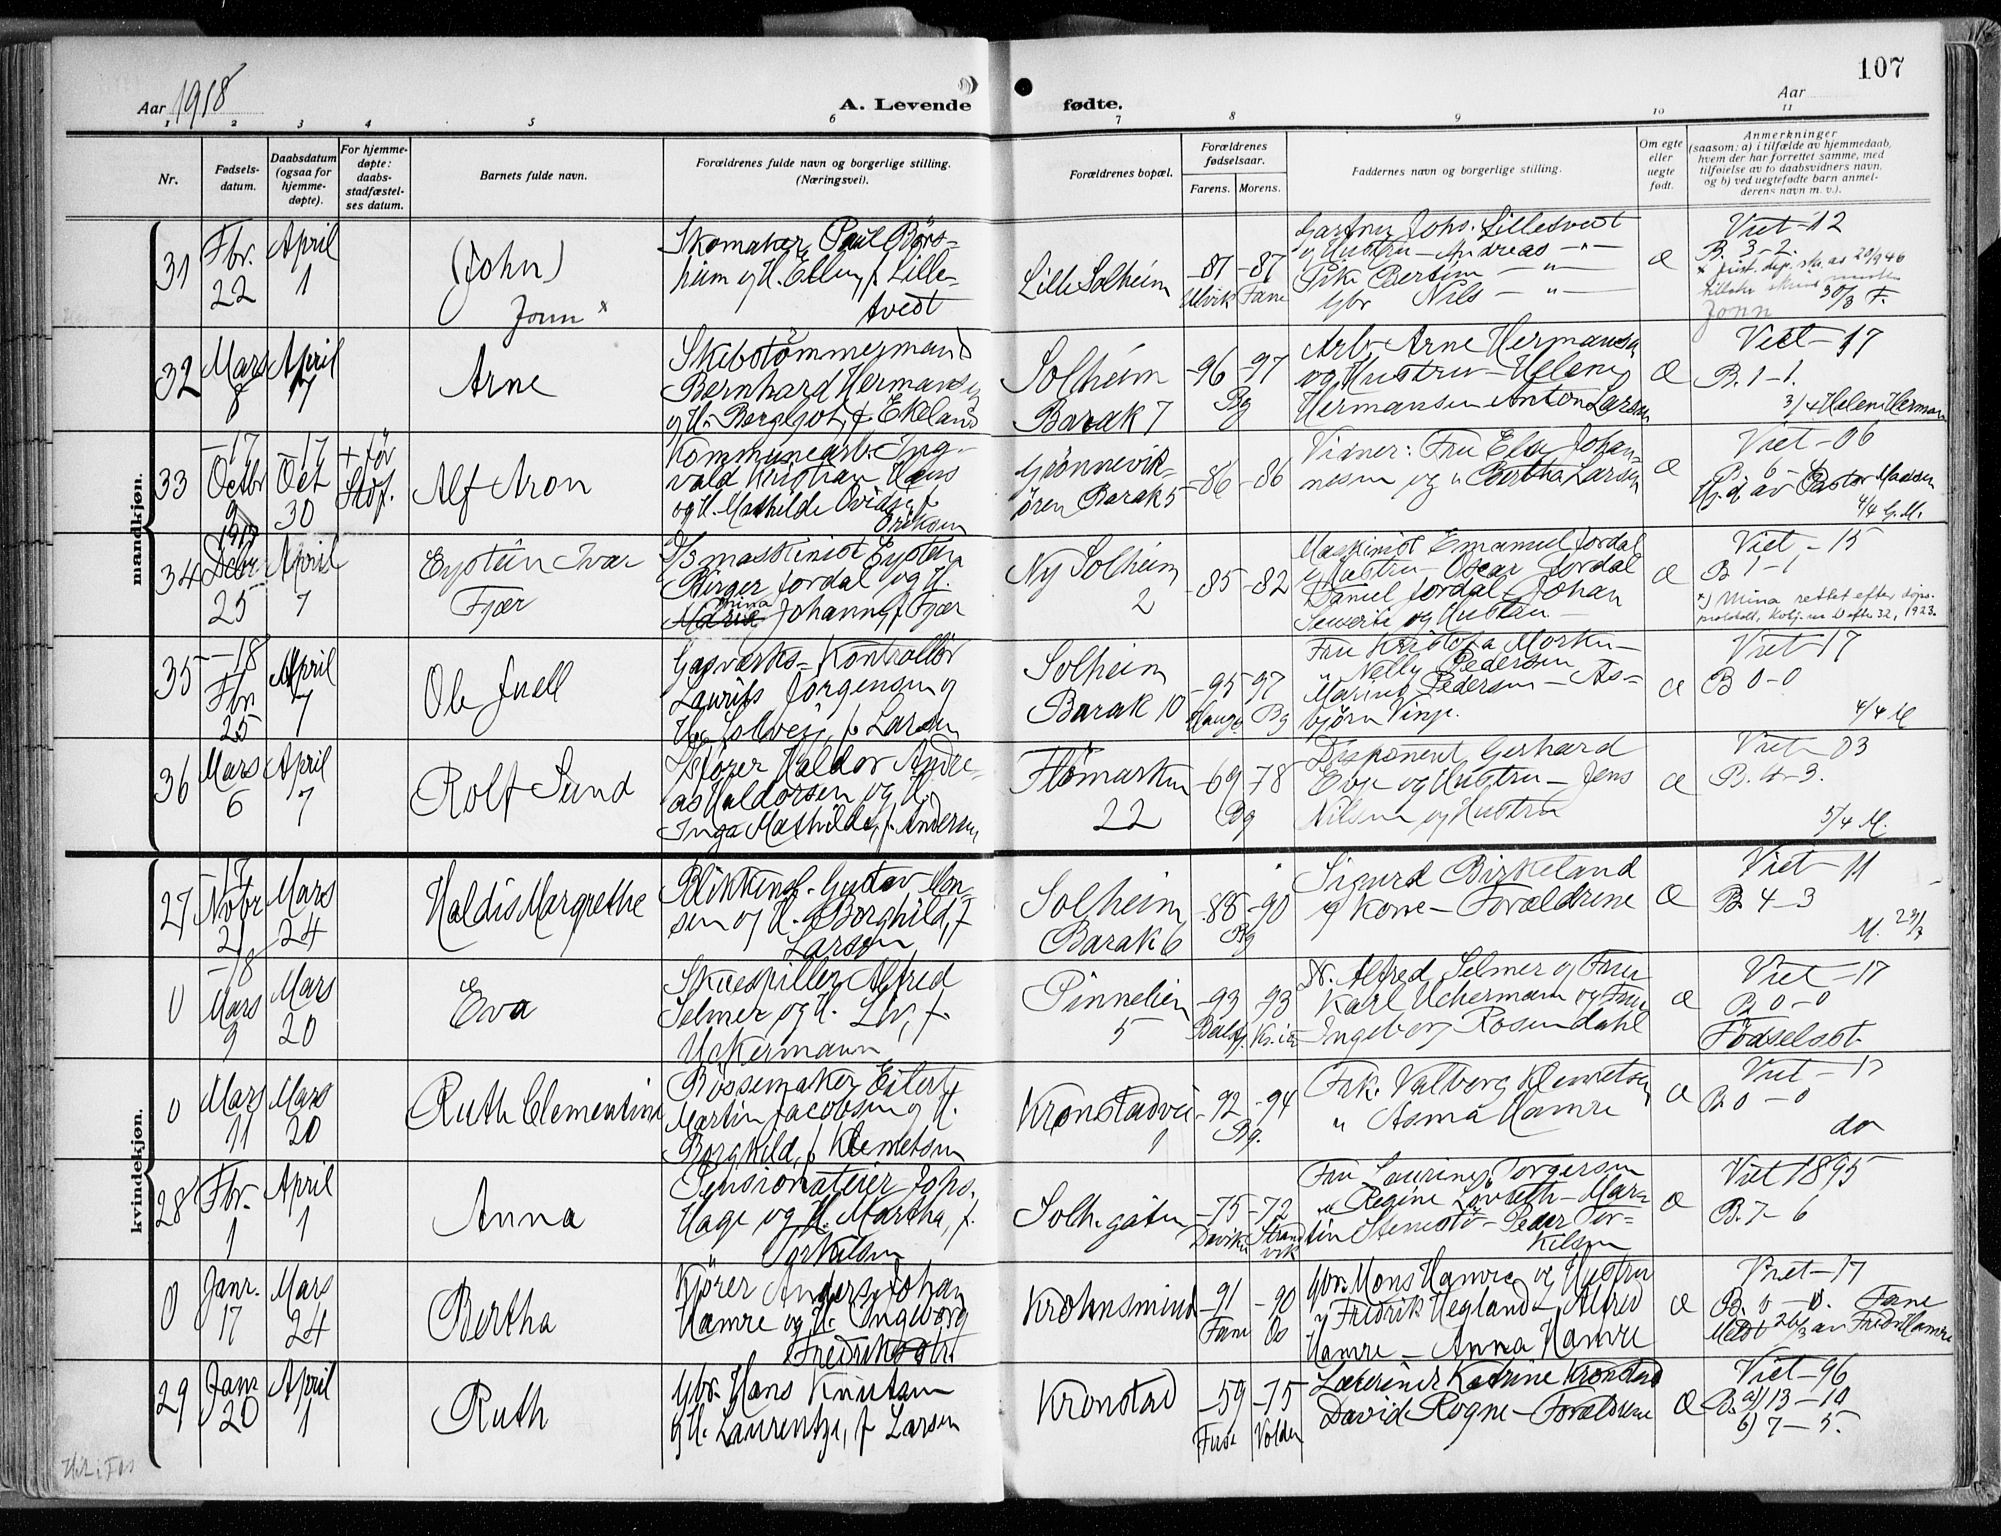 107
Aar 1918
A. Levende fødte.
Aar
1 2 3 4 5 6 7 8 9 10 11
Nr.
Fødsels-
datum.
Daabsdatum
(ogsaa for
hjemme-
døpte).
For hjemme-
døpte:
daabs-
stadfæstel-
ses datum.
Barnets fulde navn.
Forældrenes fulde navn og borgerlige stilling.
(Næringsvei).
Forældrenes bopæl.
Forældrenes
fødselsaar.
Farens. Morens.
Faddernes navn og borgerlige stilling.
Om egte
eller
uegte
født.
Anmerkninger
(saasom: a) i tilfælde av hjemmedaab,
hvem der har forrettet samme, med
tilføielse av to daabsvidners navn,
og b) ved uegtefødte barn anmel-
derens navn m. v.).
mandkjøn.
31
Fbr.
22
April
1
(John)
Jonn x
Skomaker Paul Børs-
heim og H. Ellen, f. Lille-
tvedt
Lille Solheim
-87 -87
Ulvik Fane
Gartner Johs. Lilletvedt
og Hustru - Andreas - " -
Pike Bertine - " -
Gbr Nils - " -
æ
Viet - 12
B. 3-2.
30/3 F.
Jonn
32
Mars
8
April
7
Arne
Skibstømmermand
Bernhard Hermansen
og H. Bergljot, f. Ekeland
Solheim
Barak 7
-96 -97
Bg
Arb. Arne Hermansen
og Hustru - Helene
Hermansen Anton Larsen
æ
Viet - 17
B. 1-1.
3/4 Helene Herman
33
-17
Octbr
9
-17
Oct
30
+ før
Stdf.
Alf Aron
Kommunearb. Ing-
vald Kristian Hans
og H. Mathilde Ovidia, f.
Eriksen
Grønnevik-
ören Barak 5
-86 -86
Vidner: Fru Ela Johan-
nesen og " Bertha Larsen
æ
Viet - 06
Hj.d. av Pastor Madsen
4/4 G.M.
34
1917
Decbr
25
April
7
Eystein Ivar
Fjær
D/S maskinist Eystein
Birger Jordal og H.
Mina
Marie Johanne, f. Fjær
Ny Solheim
2
-85 -82
Maskinist Emanuel Jordal
og Hustru - Oscar Jordal
Daniel Jordal - Johan
Severin og Hustru -
æ
Viet - 15
B 1-1
x) Mina rettet efter døps-
35
-18
Fbr.
25
April
7
Ole Juell
Gasværks-Kontrollør
Laurits Jørgensen og
H. Solveig, f. Larsen
Solheim
Barak 10
-95 -97
Hauge Bg
Fru Kristofa Morken -
" Nelly Pedersen
Marino Pedersen - As-
bjørn Vinje.
æ
Viet 17
B 0-0
4/4 M
36
Mars
6
April
7
Rolf Sund
Haldor Andre-
as Haldorsen og H.
Inga Mathilde, f. Andersen
Flömarken
22
-69 -78
Bg
Disponent Gerhard
Evje og Hustru - Jens
Nilsen og Hustru
æ
Viet - 03
B. 4-3.
5/4 M.
kvindekjøn.
27
17
Novbr
21
Mars
24
Haldis Margrethe
Blikkensl. Gustav Mon-
sen og H. Borghild, f.
Larsen
Solheim
Barak 6
-88 -90
Bg
Sigurd Birkeland
og Kone - Forældrene
æ
Viet - 11
B. 4-3
M. 23/3
0
-18
Mars
9
Mars
20
Eva
Skuespiller Alfred
Selmer og H. Liv, f.
Uckermann
Pinnelien
5
-93 -93
Kr.ia
Dr. Alfred Selmer og Frue
Karl Uchermann og Frue
Ingeborg Rosendahl
æ
Viet - 17
B. 0-0
Födselsst.
0
Mars
11
Mars
20
Ruth Clementine
Bössemaker Eilert
Martin Jacobsen og H.
Borghild, f. Klemetsen
Kronstadvei
9
-92 -94
Bg.
Frk. Valborg Klemetsen
" Asma Hamre
æ
Viet - 17
B. 0-0
do
28
Fbr.
1
April
1
Anna
Pensionateier Johs.
Hage og H. Martha, f.
Torkilsen
Solh.gaten
-75 -72
Daviken Strand
vik
Fru Laurine Torgersen
" Regine - Mar-
tin Stenestø - Peder Tor-
kilsen
æ
Viet 1895
B. 7-6
0
Janr.
17
Mars
24
Bertha
Kjörer Anders Johan
Hamre og H. Ingeborg
Fredrikke
Krohnsminde
-91 -90
Fane Os
Gbr. Mons Hamre og Hustru
" Fredrik Hegland - Alfred
Hamre - Anna Hamre
æ
Viet - 17
B. 0-0. Fane
Meldt 26/3 av Fredr. Hamre
29
Janr
20
April
1
Ruth
Gbr. Hans Knutsen
og H. Laurentze, f. Larsen
Kronstad
-59 -75
Fuse Volden
Lærerinde Katrine Kronstad
David Rogne - Forældrene
æ
Viet - 96
B. a) 13-10
b) 7-5.